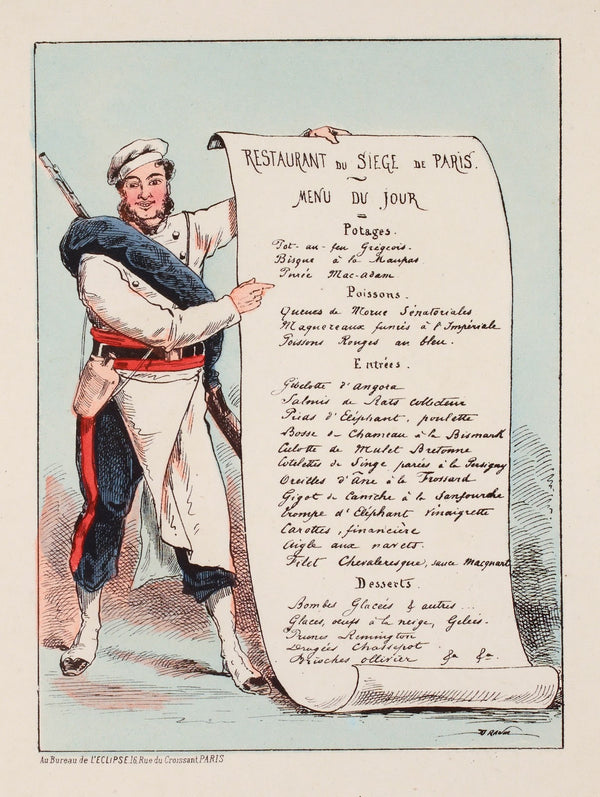 RESTAURANT DU SIEGE DE PARIS.
MENU DU JOUR
Potages.
Pot-au-feu Grégeois.
Bisque à la Maupas
Purée Mac-adam
Poissons.
Queues de Morue Sénatoriales
Maquereaux fumés à l'Impériale
Poissons Rouges au bleu.
Entrées.
Gibelotte d'angora
Salmis de Rats collecteur
Pieds d'Eléphant, poulette
Bosse de Chameau à la Bismark
Culotte de Mulet Bretonne
Cotelettes de Singe panées à la Persigny
Oreilles d'Ane à la Frossard
Gigot de Caniche à la Sanfourche
Trompe d'Eléphant Vinaigrette
Carottes, financière
Aigle aux navets.
Filet Chevaleresque, sauce Macquart
Desserts.
Bombes Glacées & autres...
Glaces, oeufs à la neige, Gelées.
Prunes Remington
Dragées Chassepot
Brioches Ollivier &a &a.
DRANER
Au Bureau de L'ECLIPSE, 16, Rue du Croissant, PARIS